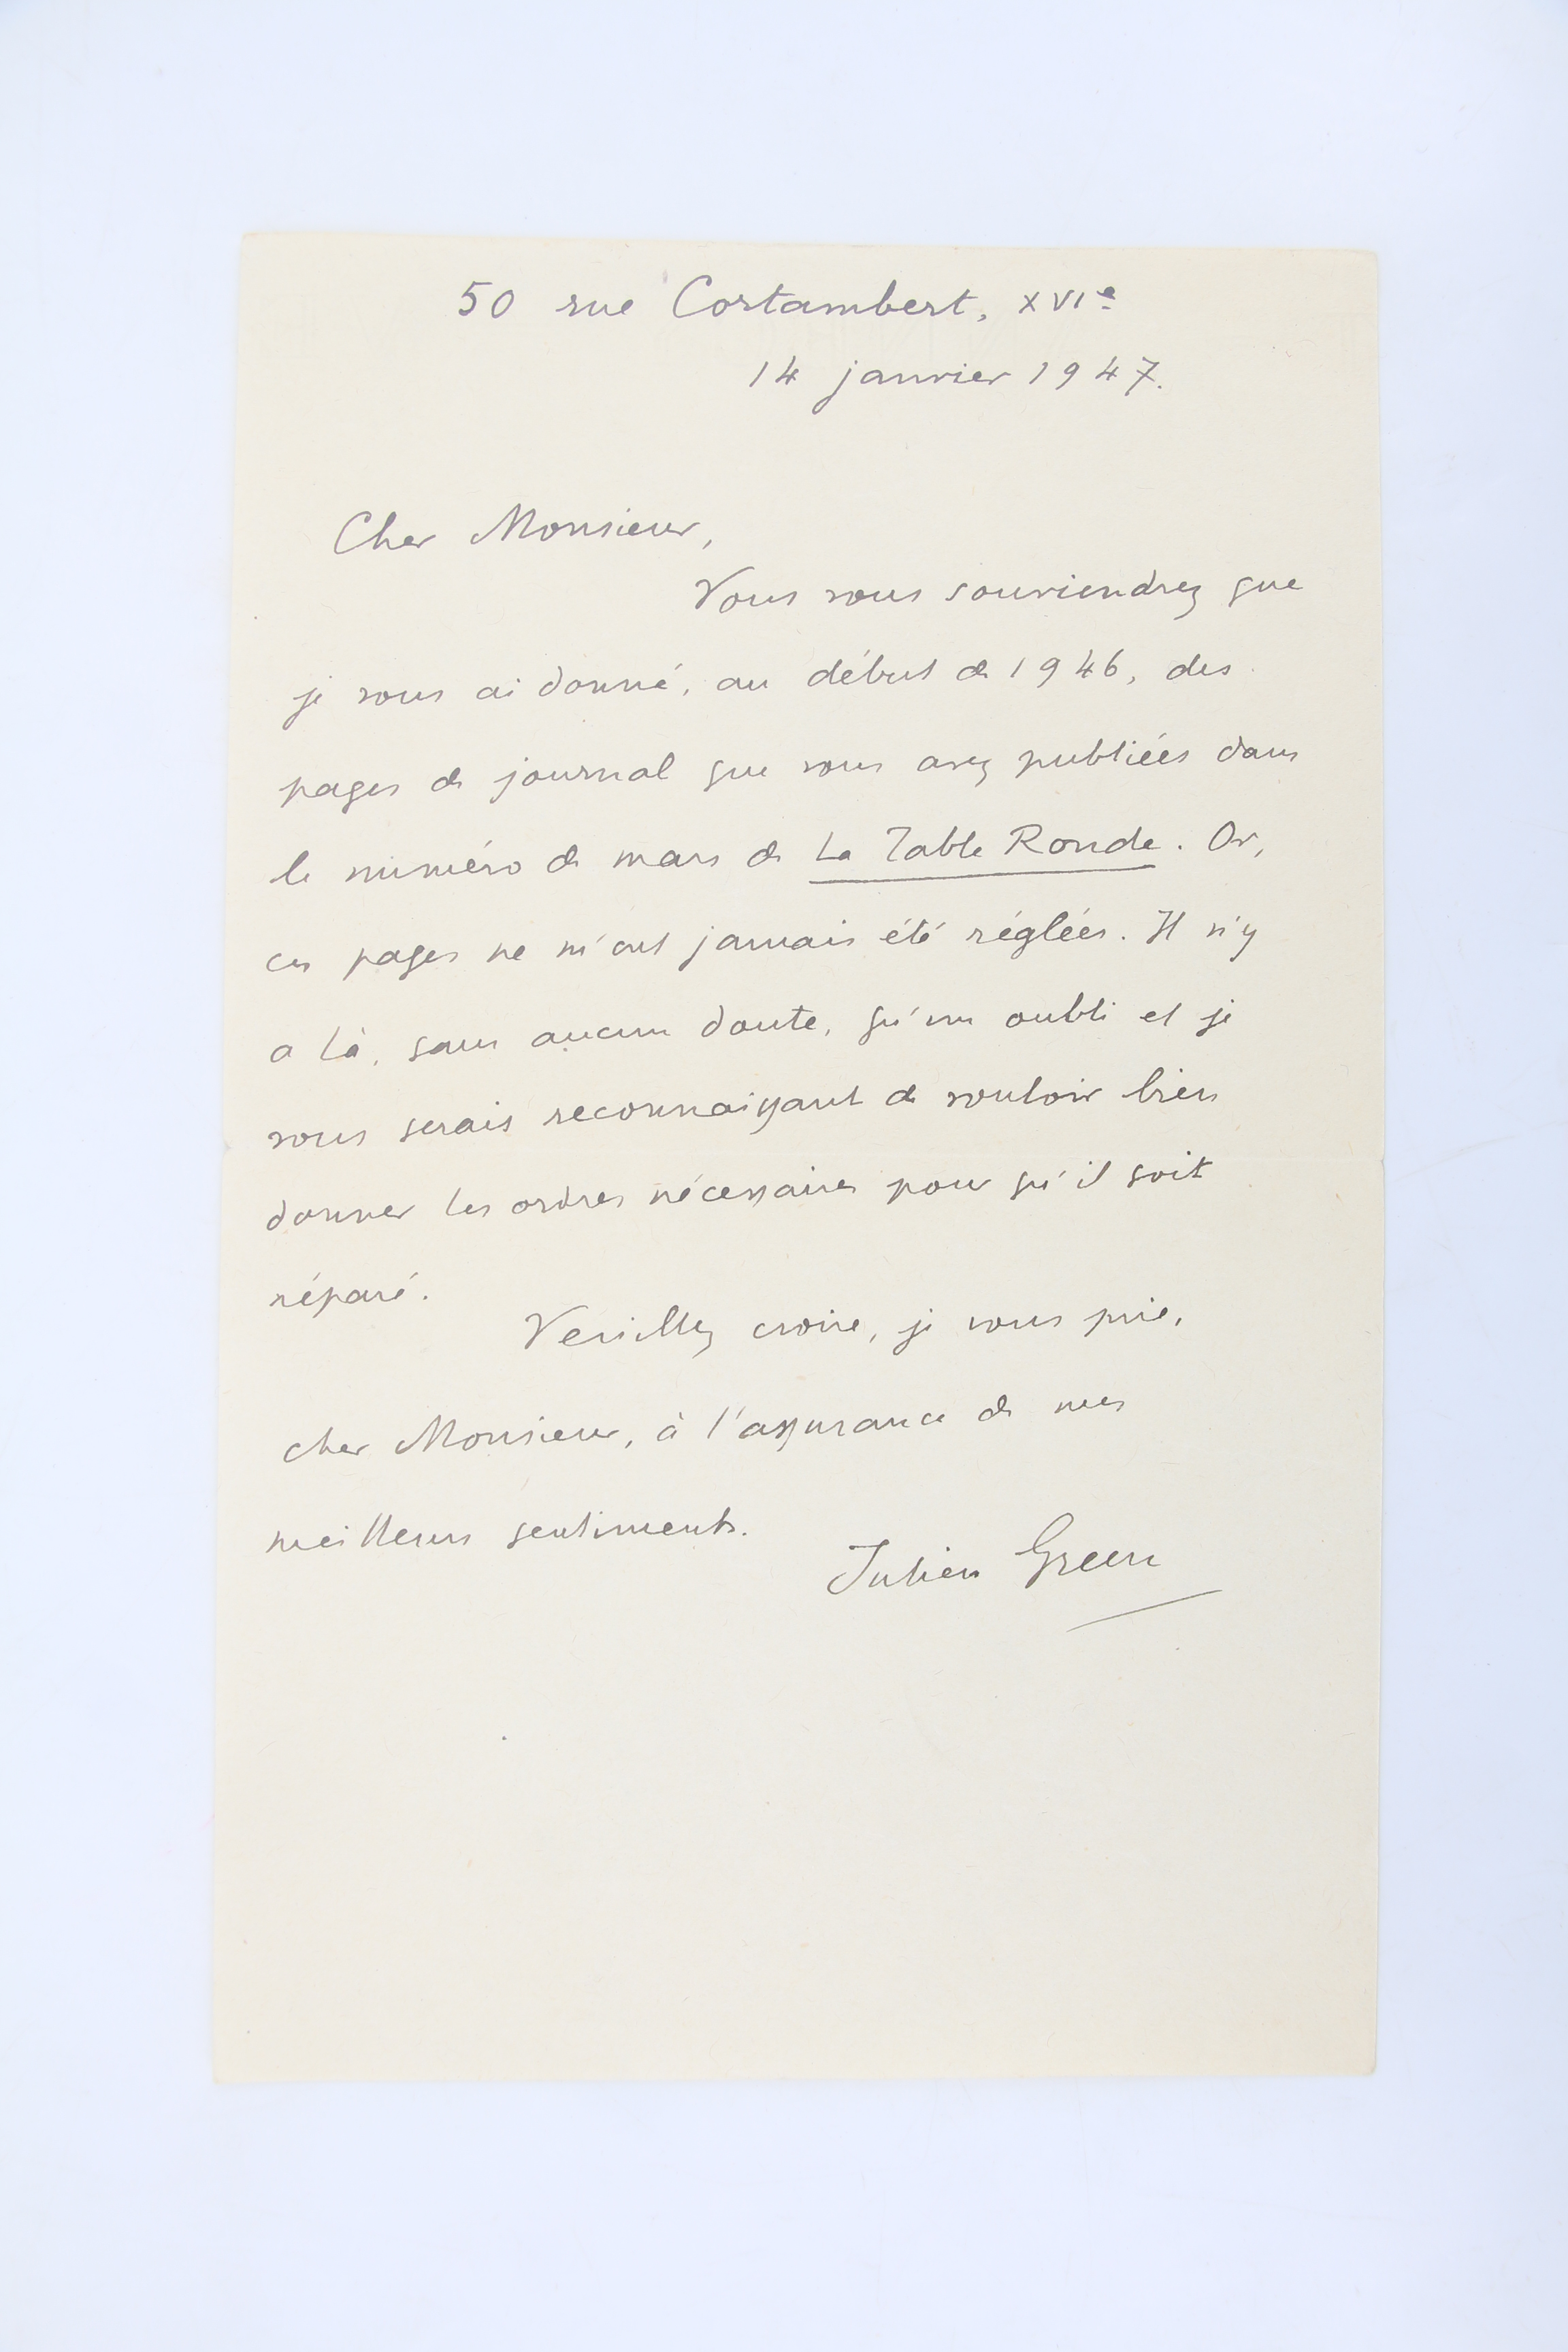 50 rue Cortambert, XVIe
14 janvier 1947.
Cher Monsieur,
Vous vous souviendrez que
je vous ai donné, au début de 1946, des
pages de journal que vous avez publiées dans
le numéro de mars de La Table Ronde. Or,
ces pages ne m'ont jamais été réglées. Il n'y
a là, sans aucun doute, qu'un oubli et je
vous serais reconnaissant de vouloir bien
donner les ordres nécessaires pour qu'il soit
réparé.
Veuillez croire, je vous prie,
cher Monsieur, à l'assurance de mes
meilleurs sentiments.
Julien Green